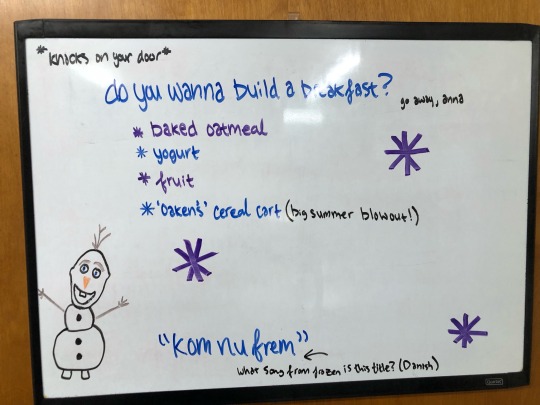 *knocks on your door*
do you wanna build a breakfast?
go away, anna
* baked oatmeal
* yogurt
* fruit
* 'oaken's' cereal cart (big summer blowout!)
"kom nu frem"
what song from frozen is this title? (Danish)
Quartet